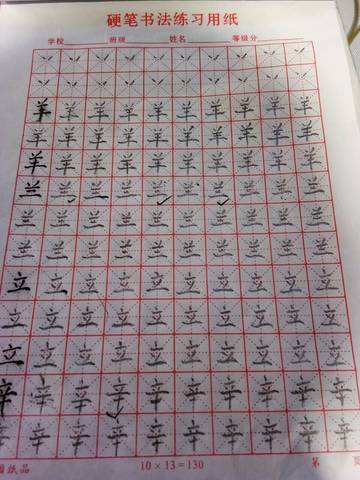 硬笔书法练习用纸
学校 班级 姓名 等级分
丷丷丷丷丷丷丷丷丷丷
丷丷丷丷丷丷丷丷丷丷
羊羊羊羊羊羊羊羊羊羊
羊羊羊羊羊羊羊羊羊羊
羊羊羊羊羊羊羊羊羊羊
兰兰兰兰兰兰兰兰兰兰
兰兰兰兰兰兰兰兰兰兰
兰兰兰兰兰兰兰兰兰兰
立立立立立立立立立立
立立立立立立立立立立
立立立立立立立立立立
辛辛辛辛辛辛辛辛辛辛
辛辛辛辛辛辛辛辛辛辛
纸品 10×13=130 第 页